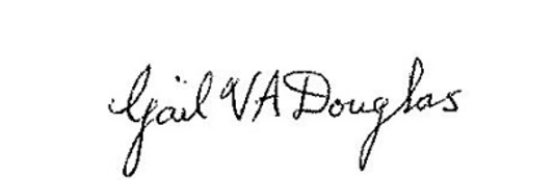 Gail VA Douglas